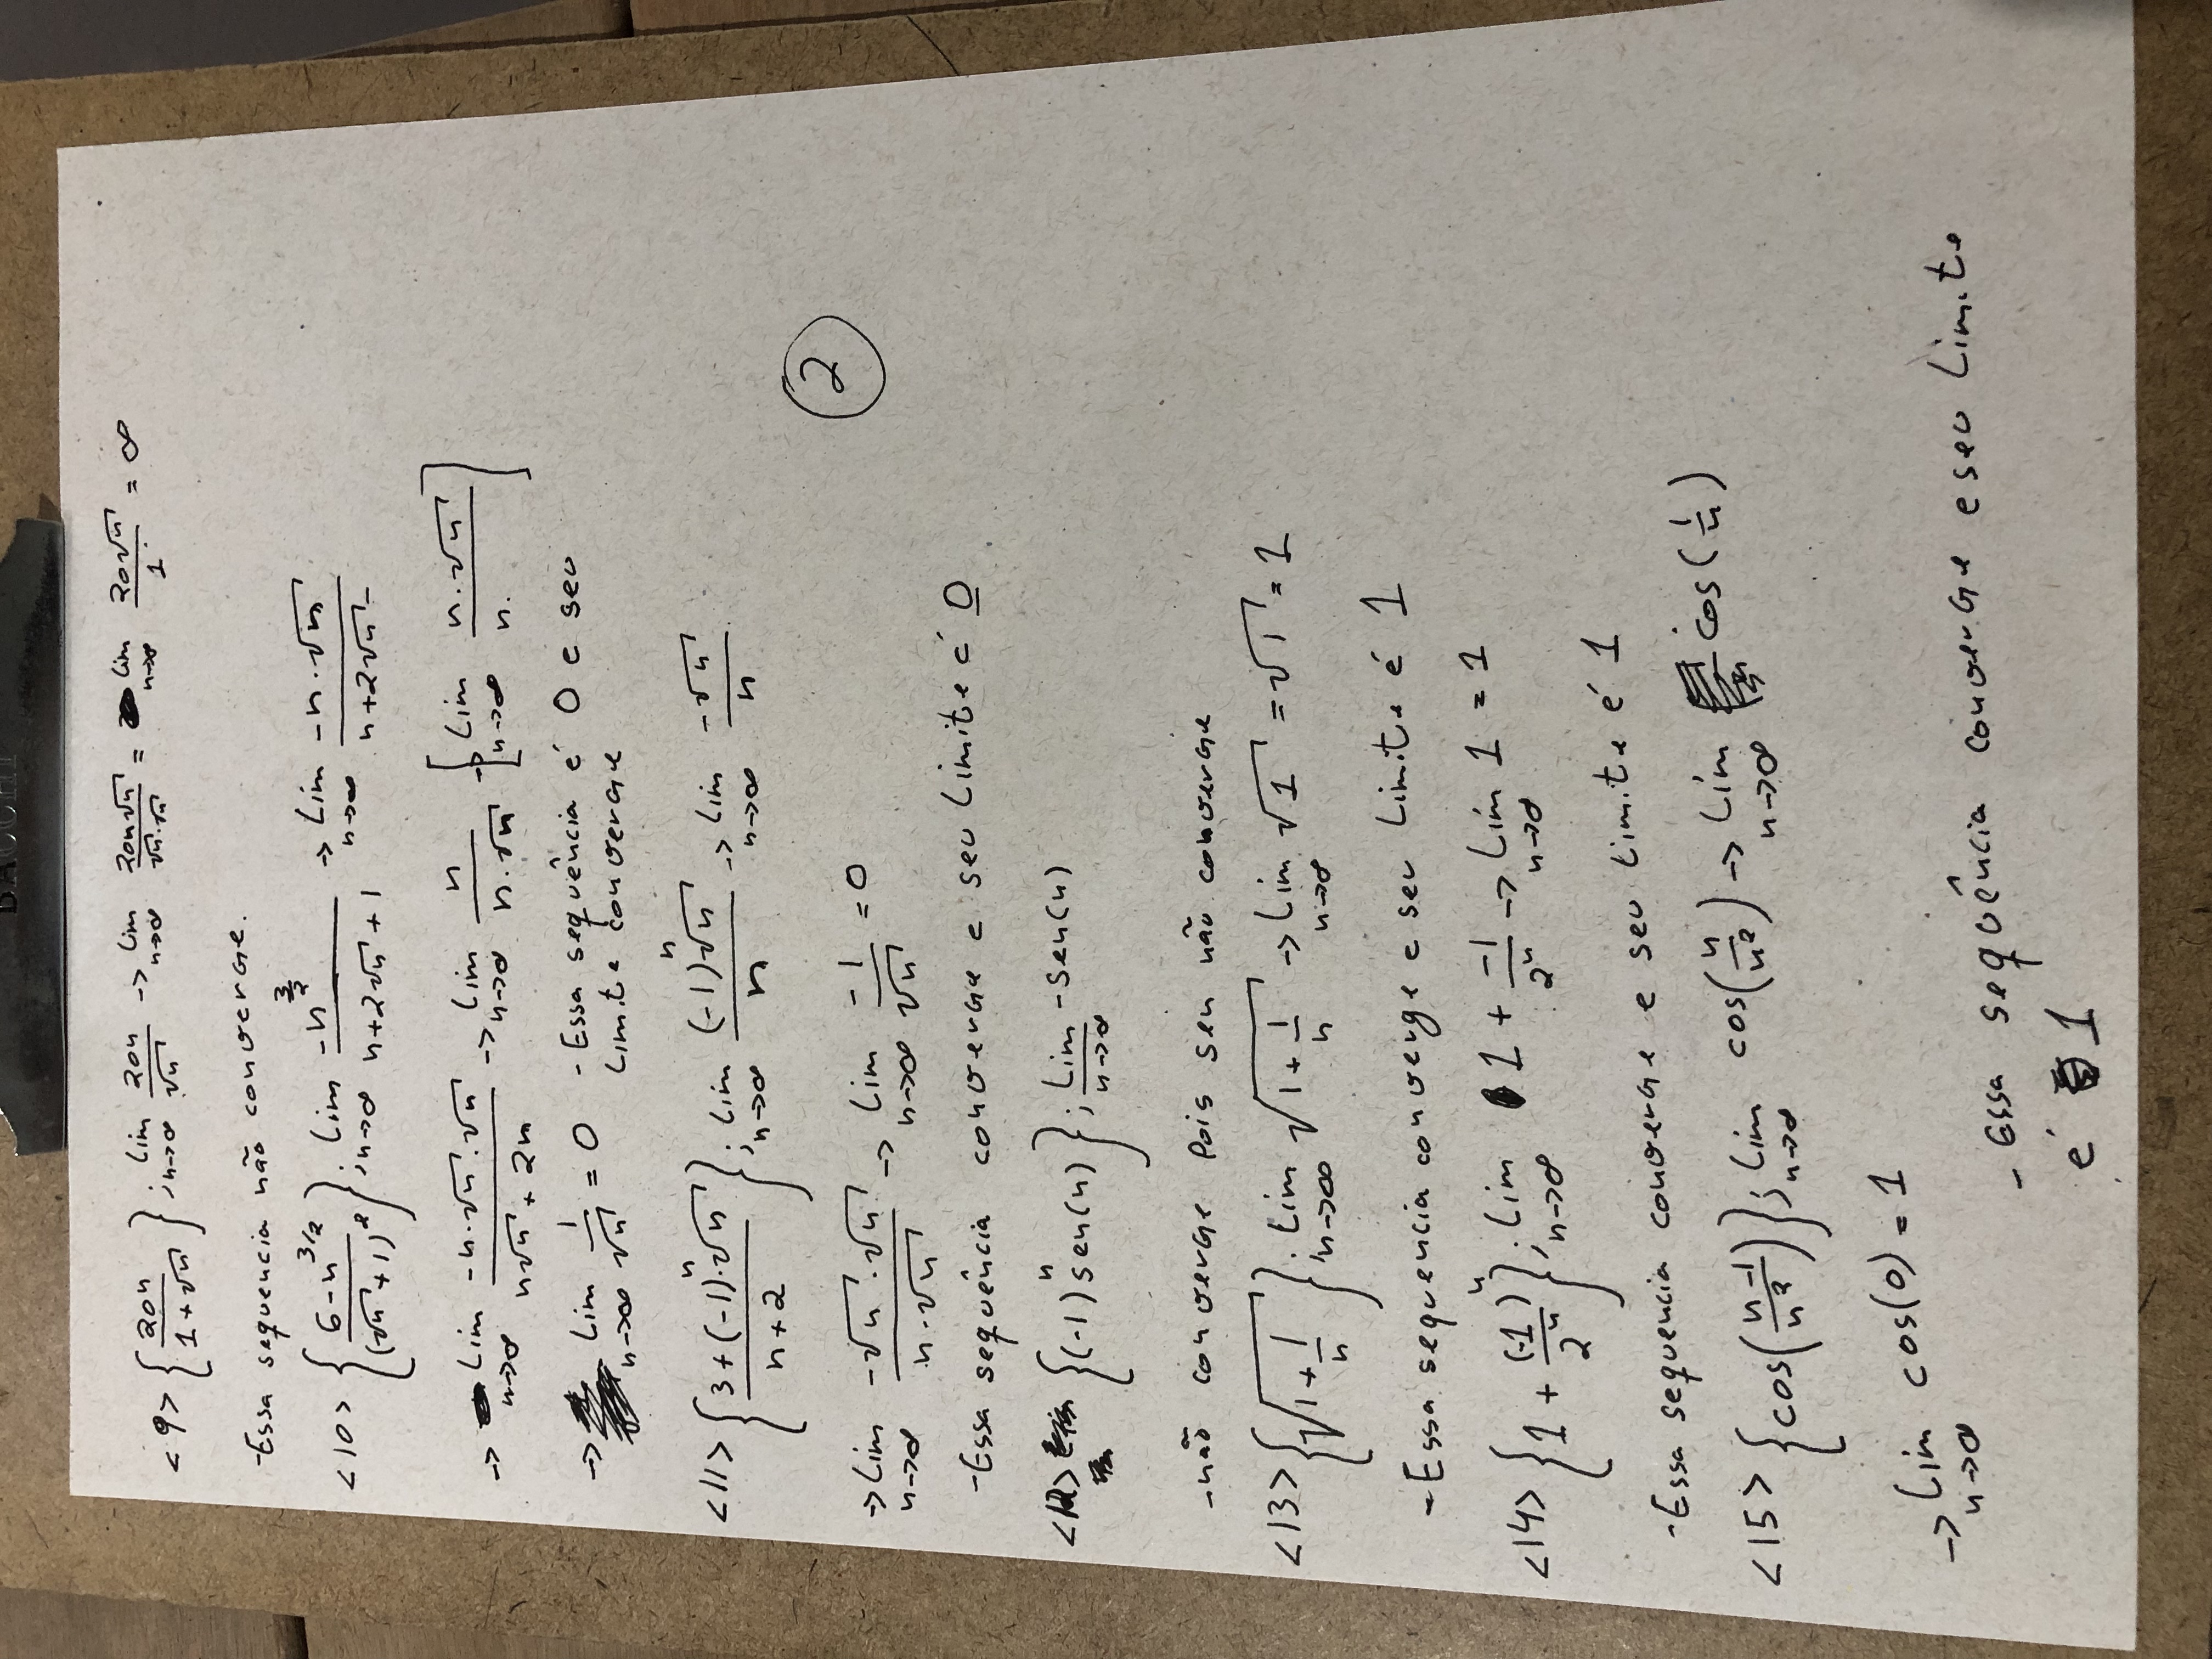 BACCHI
<9> {20n/(1+√n)} ; lim n→∞ 20n/√n → lim n→∞ 20n√n/(√n·√n) = lim n→∞ 20√n/1 = ∞
-Essa sequencia não converge.
<10> {(6-n^3/2)/(√n+1)^2} ; lim n→∞ -n^(3/2)/(n+2√n+1) → lim n→∞ -n·√n/(n+2√n-
→ lim n→∞ -n·√n·√n/(n√n+2n) → lim n→∞ n/(n·√n) → [lim n→∞ n·√n/n.]
→ lim n→∞ 1/√n = 0 - Essa sequência é 0 e seu
limite converge
<11> {(3+(-1)^n·√n)/(n+2)} ; lim n→∞ (-1)^n√n/n → lim n→∞ -√n/n
→ lim n→∞ -√n·√n/(n·√n) → lim n→∞ -1/√n = 0
②
-Essa sequência converge e seu limite é 0
<12> {(-1)^n sen(n)} ; lim n→∞ -sen(n)
-não converge pois sen não converge
<13> {√(1+1/n)} ; lim n→∞ √(1+1/n) → lim n→∞ √1 = √1 = 1
- Essa sequencia converge e seu limite é 1
<14> {1 + (-1)^n/2^n} ; lim n→∞ 1 + -1/2^n → lim n→∞ 1 = 1
-Essa sequencia converge e seu limite é 1
<15> {cos((n-1)/n^2)} ; lim n→∞ cos(n/n^2) → lim n→∞ cos(1/n)
→ lim n→∞ cos(0) = 1
- Essa sequência converge e seu limite
é 1